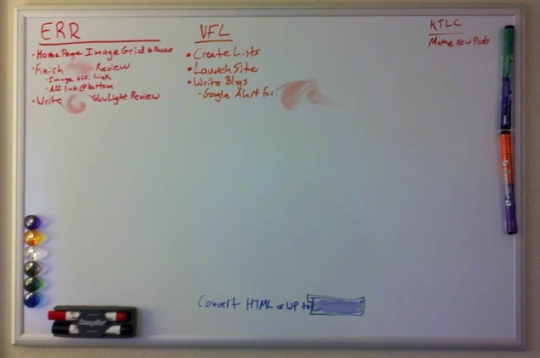 ERR
• Home Page Image Grid
• Finish Review
• Image Link
• Aff link @ bottom
• Write Light Review
VFL
• Create Lists
• Launch Site
• Write Blogs
- Google Alert for
KTLC
Make New Posts
Convert HTML or WP to